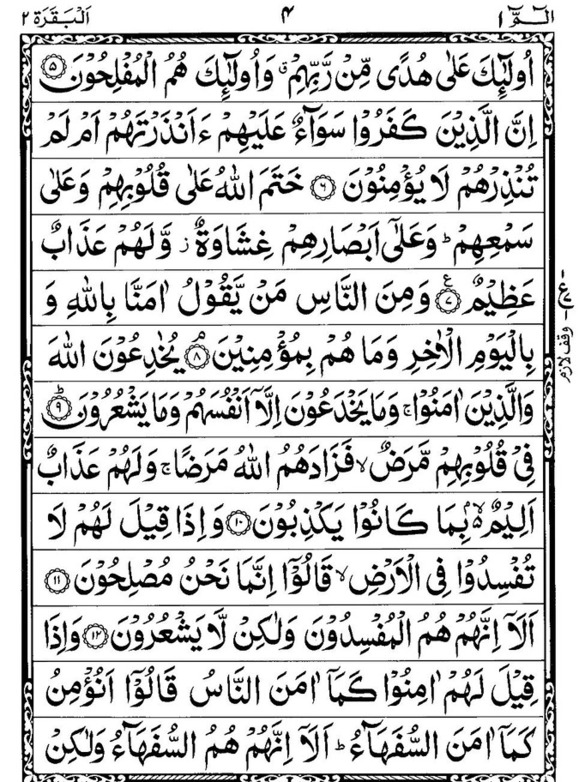 الٓمّٓ ۱ ۴ اَلْبَقَرَة ۲
اُولٰٓئِكَ عَلٰى هُدًى مِّنْ رَّبِّهِمْ ۗ وَاُولٰٓئِكَ هُمُ الْمُفْلِحُوْنَ ۝۵
اِنَّ الَّذِيْنَ كَفَرُوْا سَوَآءٌ عَلَيْهِمْ ءَاَنْذَرْتَهُمْ اَمْ لَمْ
تُنْذِرْهُمْ لَا يُؤْمِنُوْنَ ۝۶ خَتَمَ اللهُ عَلٰى قُلُوْبِهِمْ وَعَلٰى
سَمْعِهِمْ ؕ وَعَلٰٓى اَبْصَارِهِمْ غِشَاوَةٌ ز وَّلَهُمْ عَذَابٌ
عَظِيْمٌ ۝۷ ع وَمِنَ النَّاسِ مَنْ يَّقُوْلُ اٰمَنَّا بِاللهِ وَ
بِالْيَوْمِ الْاٰخِرِ وَمَا هُمْ بِمُؤْمِنِيْنَ ۝۸ۘ يُخٰدِعُوْنَ اللهَ
وَالَّذِيْنَ اٰمَنُوْا ۚ وَمَا يَخْدَعُوْنَ اِلَّآ اَنْفُسَهُمْ وَمَا يَشْعُرُوْنَ ۝۹ؕ
فِيْ قُلُوْبِهِمْ مَّرَضٌ ۙ فَزَادَهُمُ اللهُ مَرَضًا ۚ وَلَهُمْ عَذَابٌ
اَلِيْمٌ ۢ ۙ بِمَا كَانُوْا يَكْذِبُوْنَ ۝۱۰ وَاِذَا قِيْلَ لَهُمْ لَا
تُفْسِدُوْا فِي الْاَرْضِ ۙ قَالُوْٓا اِنَّمَا نَحْنُ مُصْلِحُوْنَ ۝۱۱
اَلَآ اِنَّهُمْ هُمُ الْمُفْسِدُوْنَ وَلٰكِنْ لَّا يَشْعُرُوْنَ ۝۱۲ وَاِذَا
قِيْلَ لَهُمْ اٰمِنُوْا كَمَآ اٰمَنَ النَّاسُ قَالُوْٓا اَنُؤْمِنُ
كَمَآ اٰمَنَ السُّفَهَآءُ ؕ اَلَآ اِنَّهُمْ هُمُ السُّفَهَآءُ وَلٰكِنْ
ع
وقف لازم